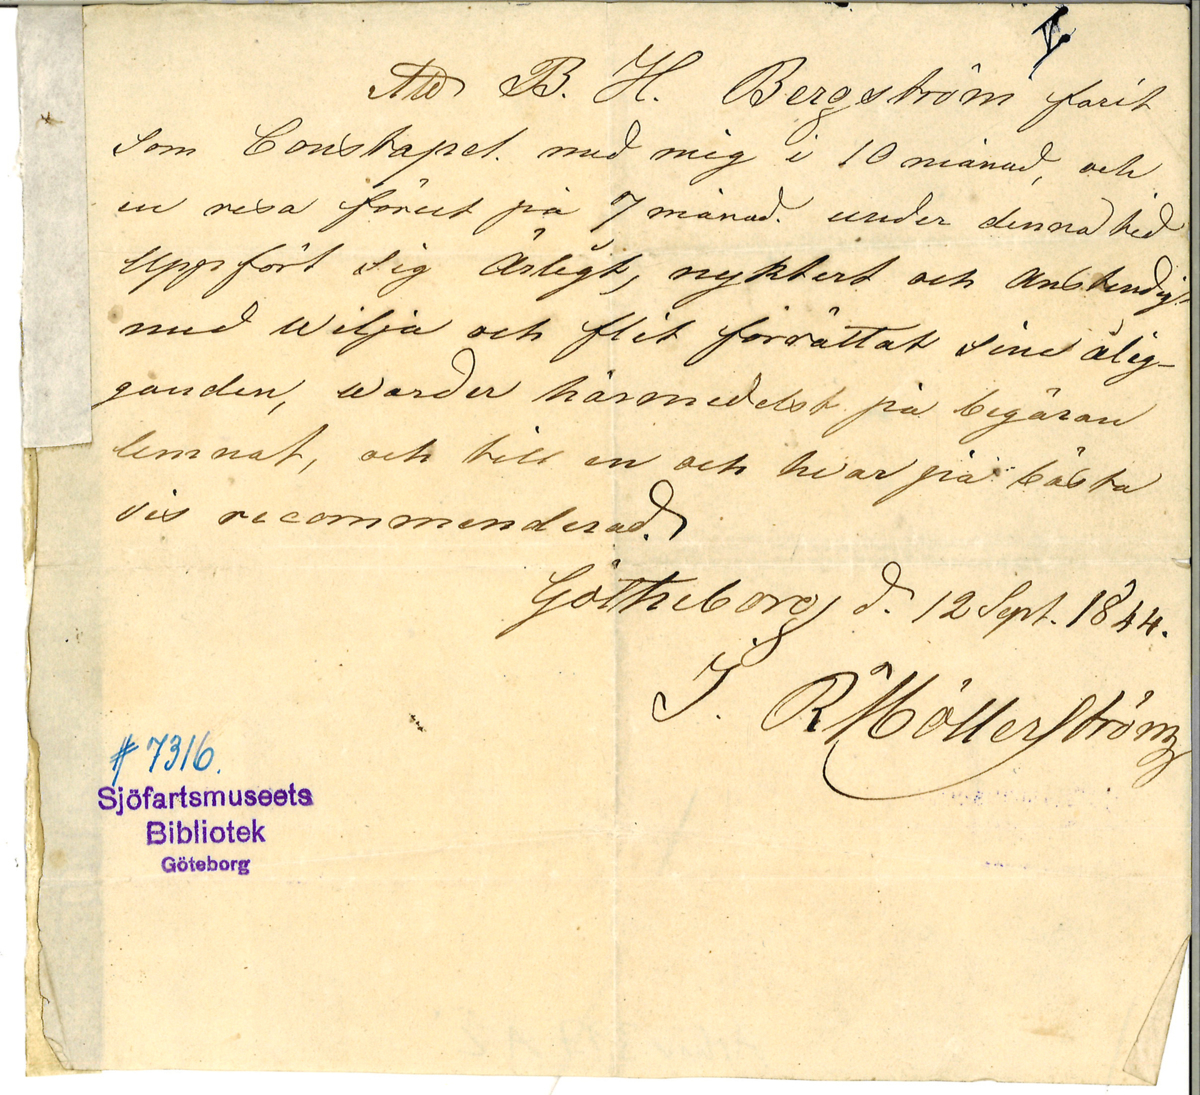 Att B. H. Bergström farit
som Constapel. med mig i 10 månad, och
en resa förut på 7 månad. under denna tid
Uppfört sig Ärligt, nyktert och anständigt
med wilja och flit förrättat sine ålig-
ganden, warder härmedelst på begäran
lemnat, och till en och hvar på bästa
vis recommenderad.
Götheborg d. 12 Sept. 1844.
J. R Möllerström
# 7316.
Sjöfartsmuseets
Bibliotek
Göteborg